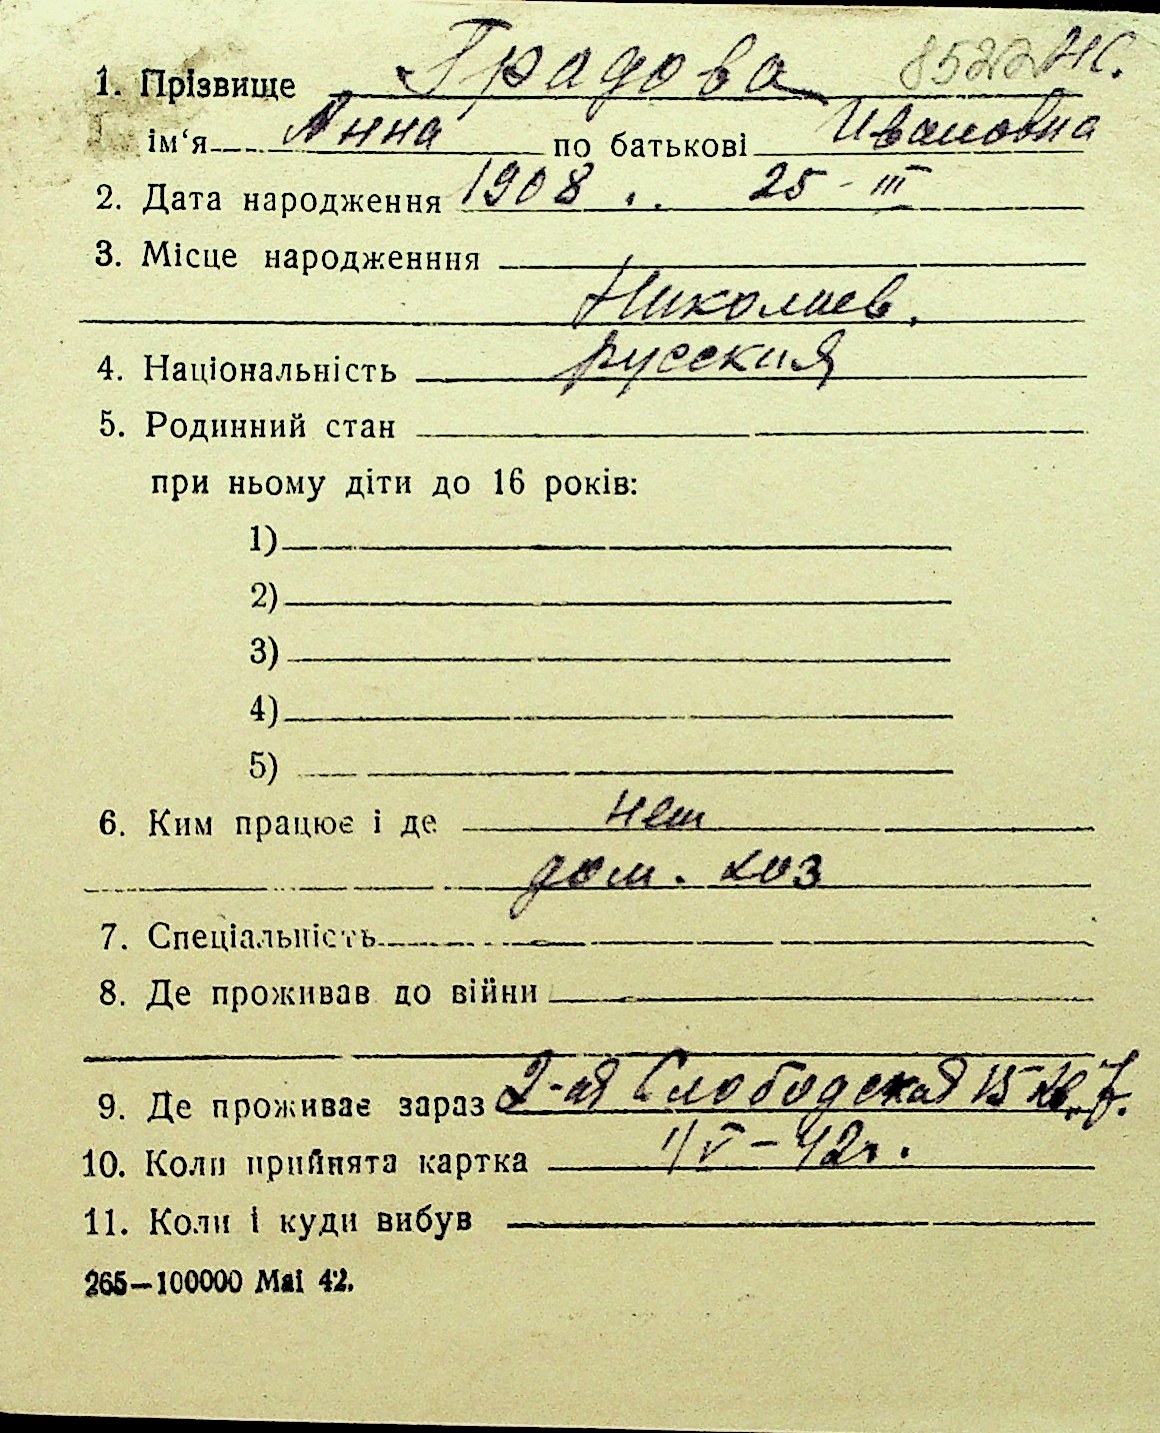 1. Прізвище Градова 8522 Ж.
ім'я Анна по батькові Ивановна
2. Дата народження 1908 . . 25 - III
3. Місце народженння
Николаев.
4. Національність русския
5. Родинний стан
при ньому діти до 16 років:
1)
2)
3)
4)
5)
6. Ким працює і де нет
дом. хоз
7. Спеціальність
8. Де проживав до війни
9. Де проживає зараз 2-ая Слободская 15 кв. 7.
10. Коли прийнята картка V – 42г.
11. Коли і куди вибув
265—100000 Маі 42.